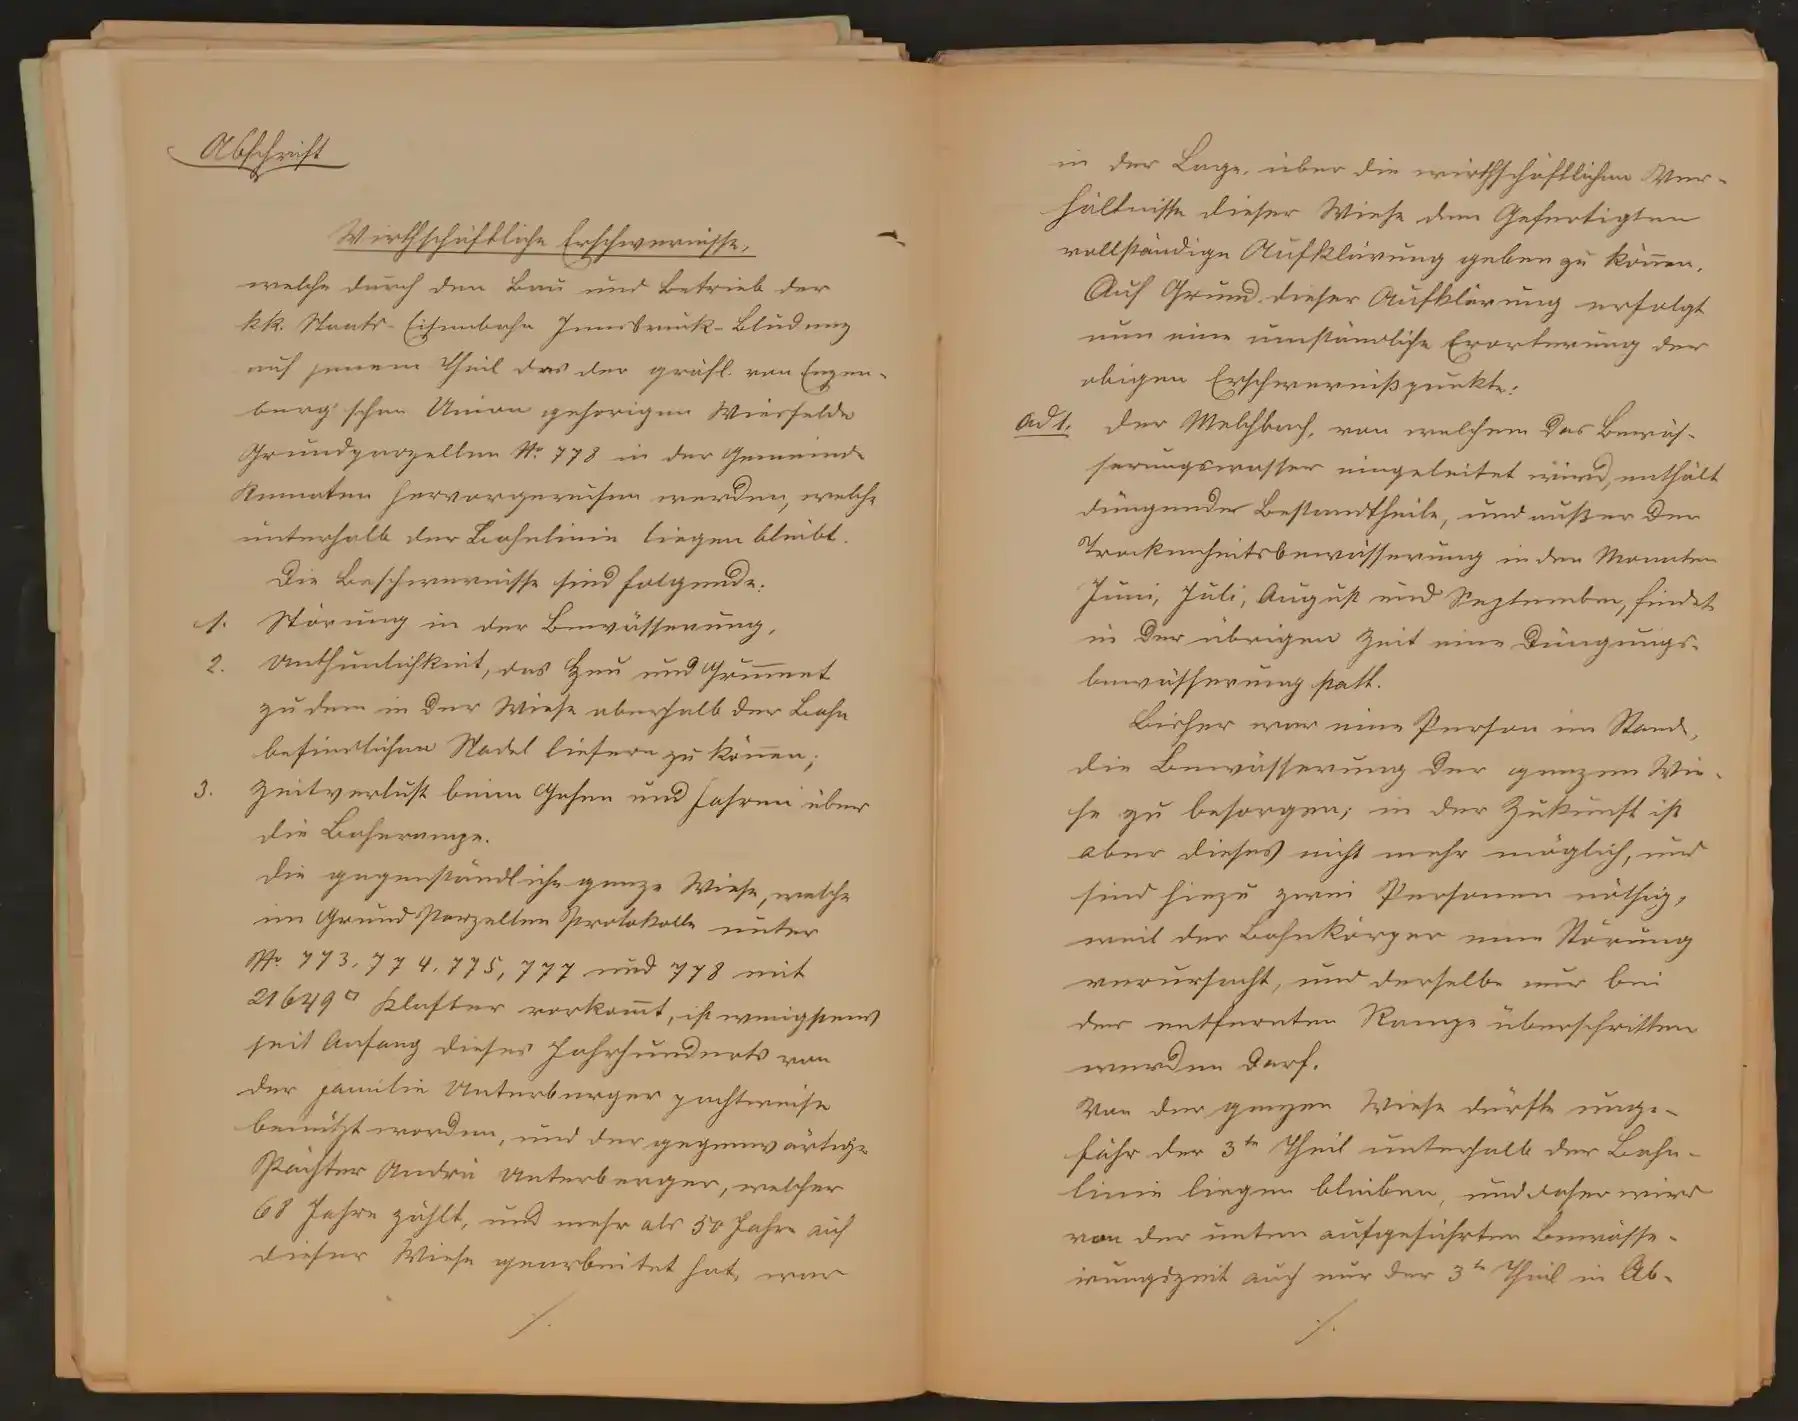 Abschrift
Wirthschäftliche Erschwernisse,
welche durch den Bau und Betrieb der
kk. Staats-Eisenbahn Innsbruck-Bludenz
auf jenem Theil des der gräfl. von Enzen-
berg'schen Union gehörigen Wiesfelde
Grundparzellen No 778 in der Gemeinde
Kematen hervorgerufen werden, welche
unterhalb der Bahnlinie liegen bleibt.
Die Beschwernisse sind folgende:
1. Störung in der Bewässerung,
2. Unthunlichkeit, das Heu und Grum̅et
zu dem in der Wiese oberhalb der Bahn
befindlichen Stadel liefern zu kön̅en;
3. Zeitverlust beim Gehen und Fahren über
die Bahnrampe.
Die gegenständliche ganze Wiese, welche
im Grund Parzellen Protokolle unter
No 773, 774, 775, 777 und 778 mit
21649□ Klafter vorkom̅t, ist wenigstens
seit Anfang dieses Jahrhunderts von
der Familie Unterberger pachtweise
benützt worden, und der gegenwärtige
Pächter Andrä Unterberger, welcher
68 Jahre zählt, und mehr als 50 Jahre auf
dieser Wiese gearbeitet hat, war
./.
in der Lage, über die wirthschäftlichen Ver-
hältnisse dieser Wiese dem Gefertigten
vollständige Aufklärung geben zu kön̅en.
Auf Grund dieser Aufklärung erfolgt
nun eine umständliche Erörterung der
obigen Erschwernißpunkte:
ad 1. Der Melchbach, von welchem das Bewäs-
serungswasser eingeleitet wird, enthält
düngende Bestandtheile, und außer der
Trockenheitsbewässerung in den Monaten
Juni, Juli, August und September, findet
in der übrigen Zeit eine Düngungs-
bewässerung statt.
Bisher war eine Person im Stande,
die Bewässerung der ganzen Wie-
se zu besorgen; in der Zukunft ist
aber dieses nicht mehr möglich, und
sind hiezu zwei Personen nöthig,
weil der Bahnkörper eine Störung
verursacht, und derselbe nur bei
der entfernten Rampe überschritten
werden darf.
Von der ganzen Wiese dürfte unge-
fähr der 3te Theil unterhalb der Bahn-
linie liegen bleiben, und daher wird
von der unten aufgeführten Bewässe-
rungszeit auch nur der 3te Theil in Ab-
./.